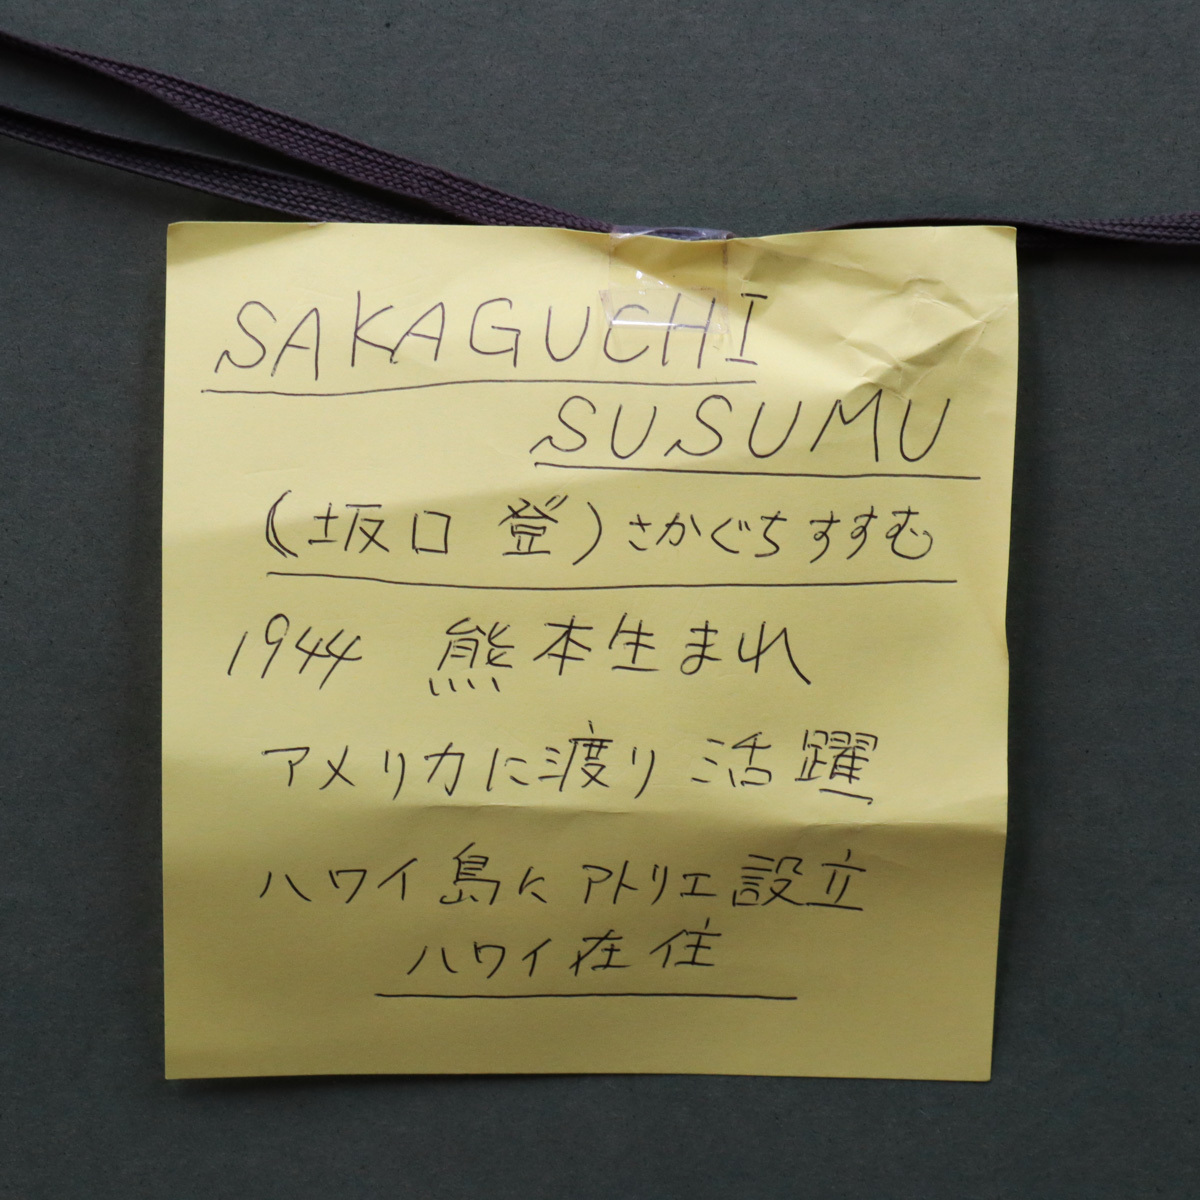 SAKAGUCHI
SUSUMU
(坂口 登) さかぐち すすむ
1944 熊本生まれ
アメリカに渡り 活躍
ハワイ島に アトリエ設立
ハワイ在住